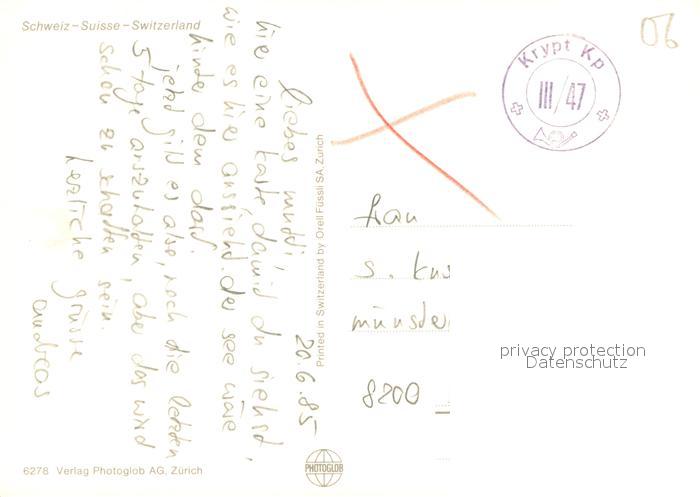 Schweiz – Suisse – Switzerland
06
Krypt Kp
III/47
20.6.85
liebes mutti,
hie eine karte damid du siehst,
wie es hier aussiehd. der see wäre
hinder dem dorf.
jetzd gild es also, noch die letzten
5 tage auszuhalten, aber das wird
schon zu schaffen sein.
herzliche grüsse
andreas
Printed in Switzerland by Orell Füssli SA, Zürich
frau
s.
münster
8200
privacy protection
Datenschutz
6278 Verlag Photoglob AG, Zürich
PHOTOGLOB